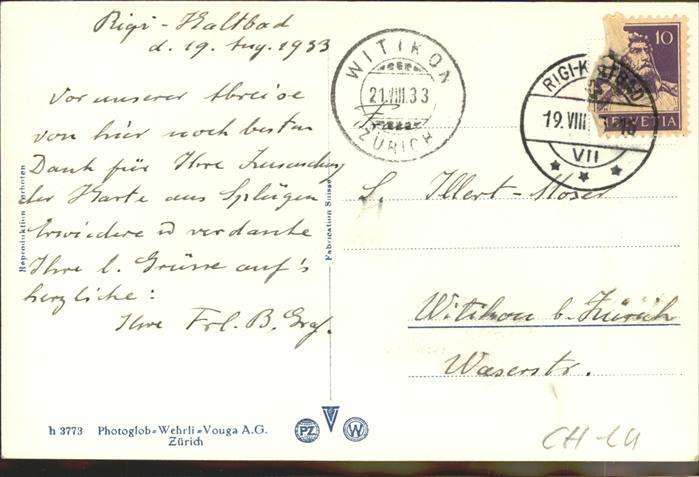 Rigi-Kaltbad
d. 19. Aug. 1933
Vor unserer Abreise
von hier noch besten
Dank für Ihre Zusendung
der Karte aus Splügen
Erwiedere u verdanke
Ihre l. Grüsse auf's
herzlichste:
Ihre Frl. B. Graf.
WITIKON
21.VIII.33
ZÜRICH
RIGI-KALTBAD
19. VIII
VII
10
HELVETIA
Illert-Moser
Witikon b. Zürich
Waserstr.
Reproduktion verboten
Fabrication Suisse
h 3773 Photoglob-Wehrli-Vouga A.G.
Zürich
PZ
W
CH-LU